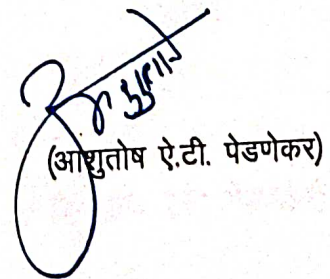 (आशुतोष ऐ.टी. पेडणेकर)